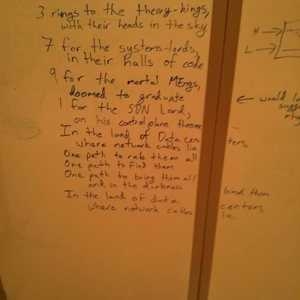 3 rings to the theory-kings,
with their heads in the sky
7 for the systems-lords,
in their halls of code
9 for the mortal MEngs,
doomed to graduate
1 for the SDN Lord,
on his control plane throne
In the land of Data cen
ters,
where network cables lie
One path to rule them all
One path to find them
One path to bring them all
and in the darkness
bind them
In the land of data
centers
where network cables
lie
← would
H
L